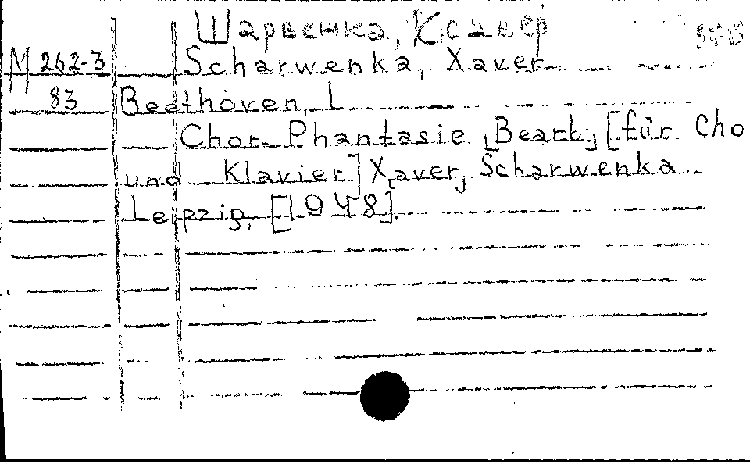 Шарвенка, Ксавер
M 262-3 Scharwenka, Xaver
83 Beethoven, L.
Chor. Phantasie, Bearb. [für Cho
und Klavier] Xaver Scharwenka
Leipzig, [1948].